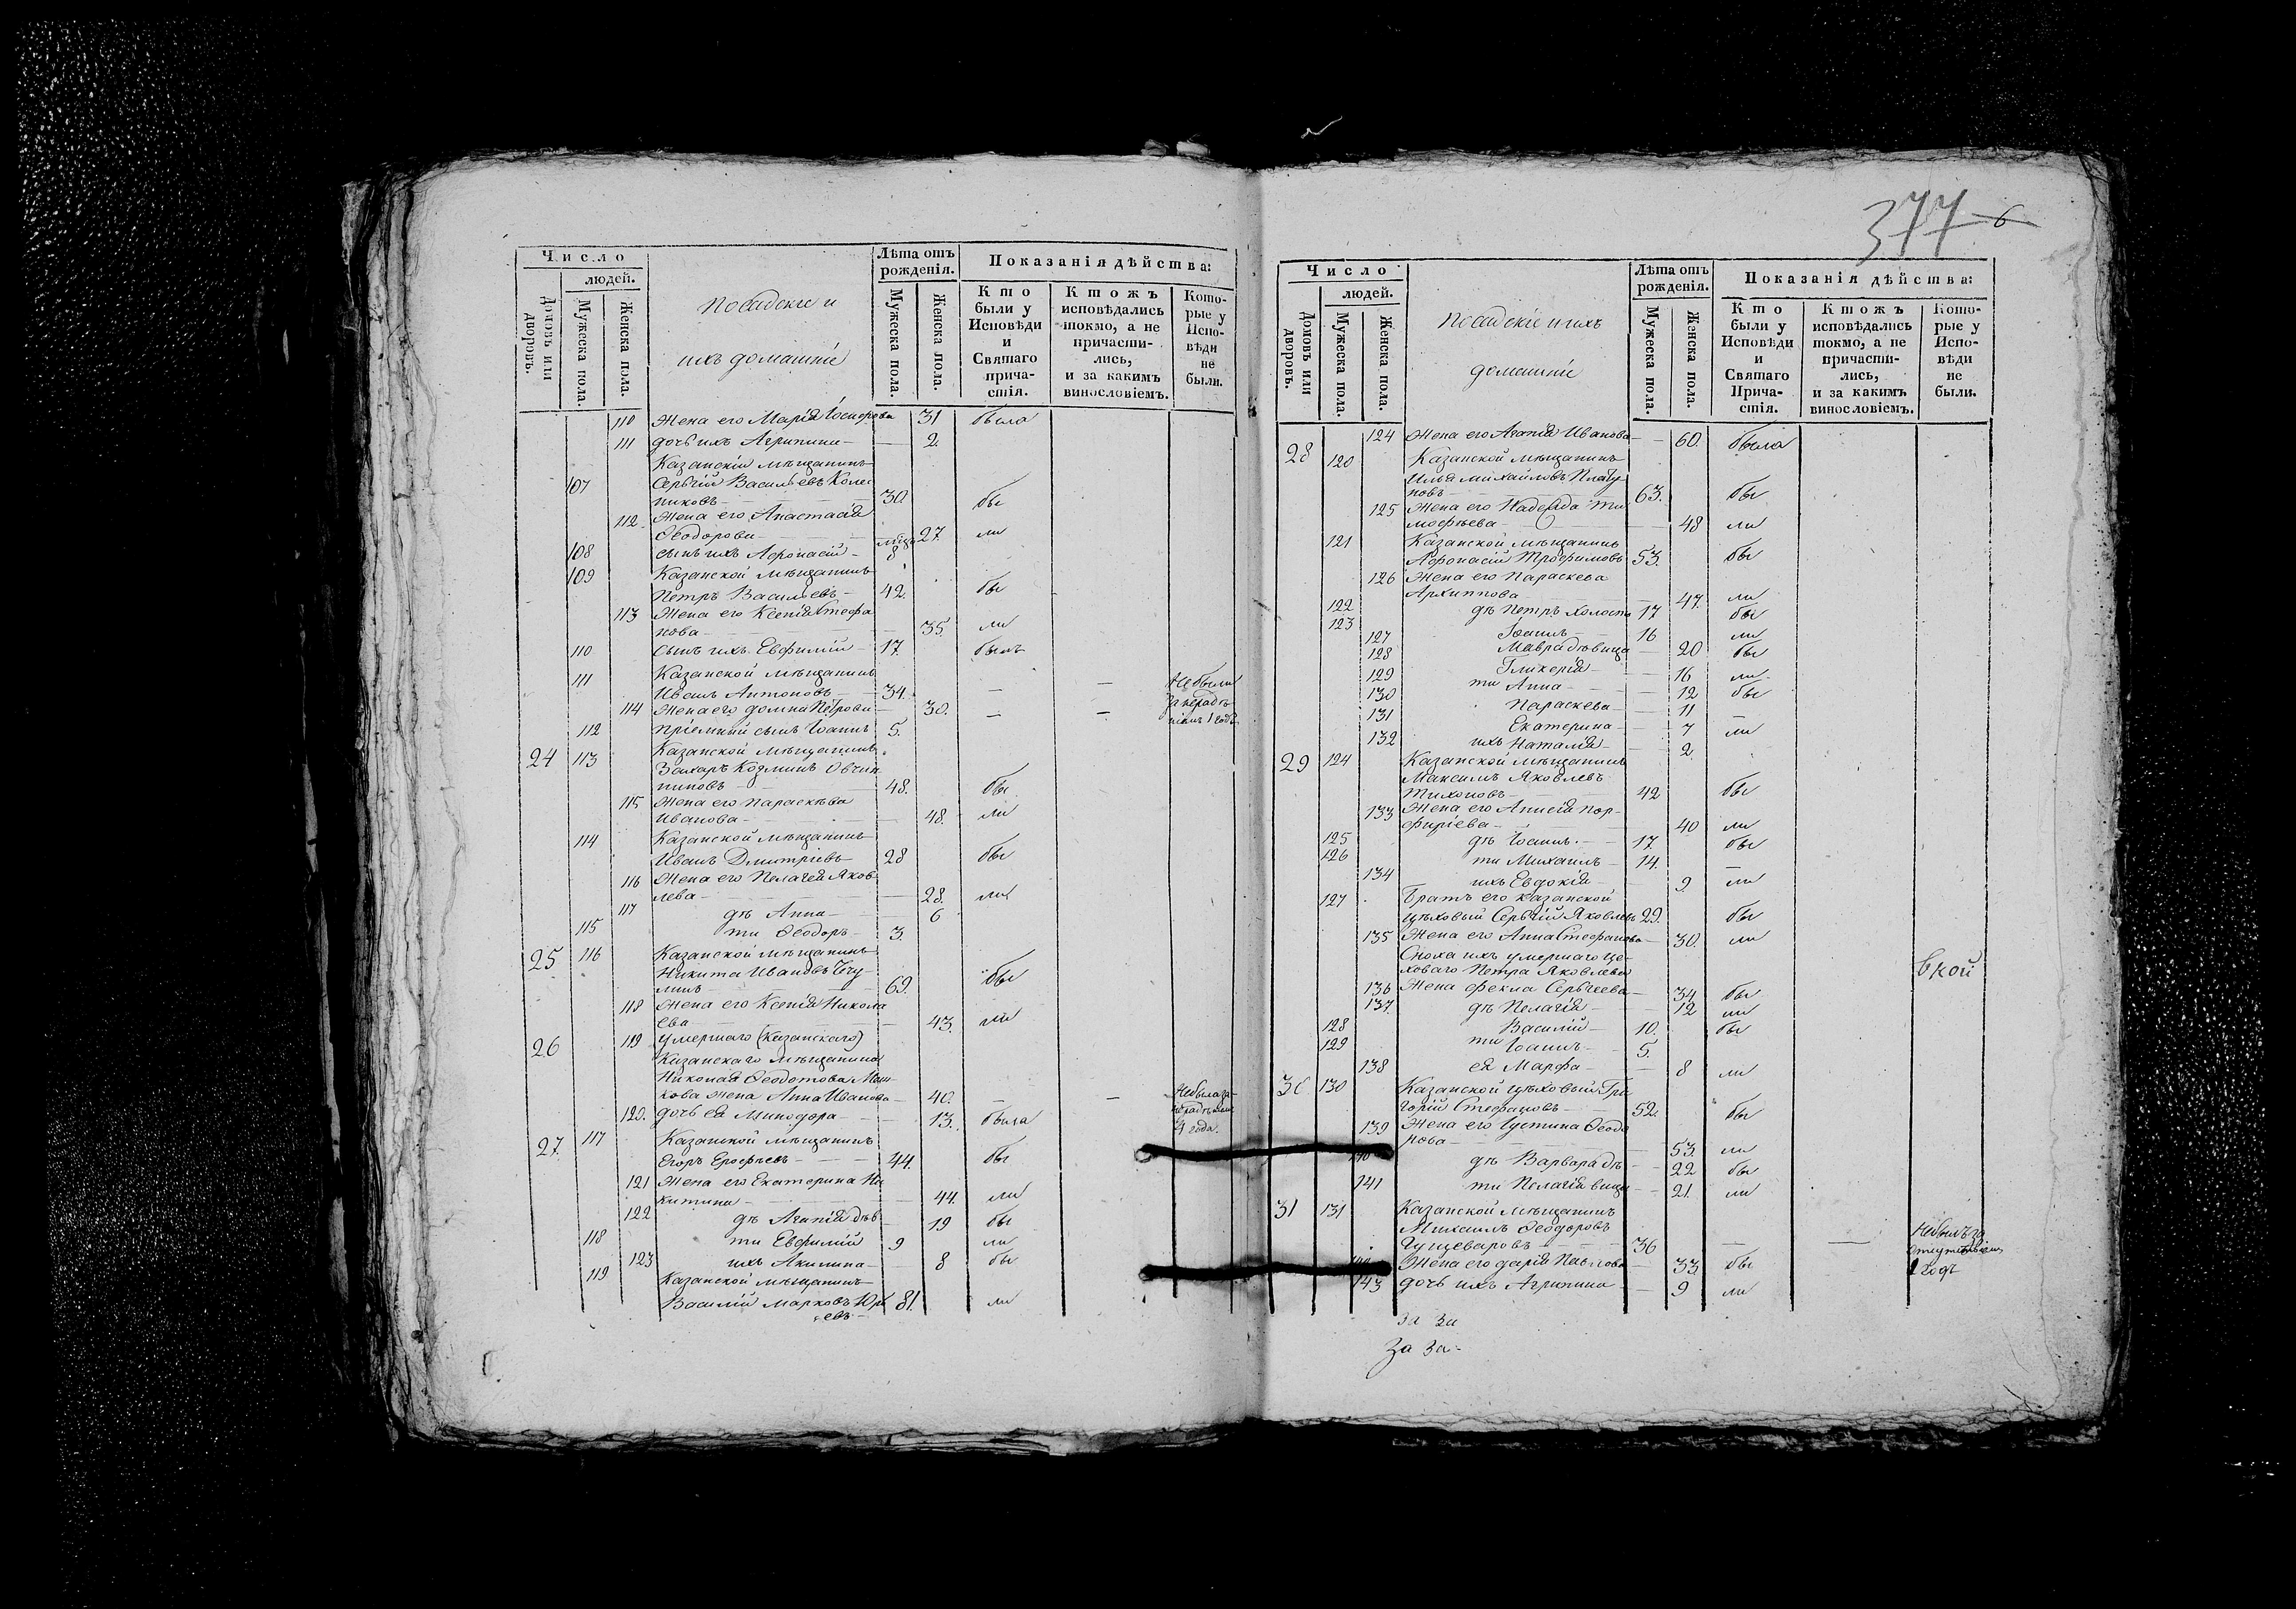 377 6
Число
людей.
Домовъ или дворовъ.
Мужеска пола.
Женска пола.
Посадскіе и
ихъ домашніе
Лѣта отъ рожденія.
Мужеска пола.
Женска пола.
Показанія дѣйства:
Кто были у Исповѣди и Святаго причастія.
Ктожъ исповѣдались токмо, а не причастились, и за какимъ винословіемъ.
Которые у Исповѣди не были.
110 Жена его Марія Іосифова 31 была
111 дочь ихъ Агрипина — 2
Казанскій мѣщанинъ
107 Сергій Васильевъ Колес
никовъ — 30 бы
112 Жена его Анастасія
Ѳеодорова — 27 ли
108 сынъ ихъ Афонасій — 8
109 Казанской мѣщанинъ
Петръ Васильевъ — 42 бы
113 Жена его Ксенія Стефа
нова — 35 ли
110 сынъ ихъ Евфимій — 17 былъ
111 Казанской мѣщанинъ
Иванъ Антоновъ — 34 — — Не были
114 Жена его домна Петрова 30 — — за нерадѣ
112 Пріемный сынъ Іоаннъ 5 ніемъ 1 годъ
24 113 Казанской мѣщанинъ
Захаръ Козминъ Овчин
никовъ — 48 бы
115 Жена его Параскева
Иванова — 48 ли
114 Казанской мѣщанинъ
Иванъ Дмитріевъ 28 бы
116 Жена его Пелагея Яков
лева — 28 ли
117 дѣ Анна — 6
115 ти Ѳеодоръ — 3
25 116 Казанской мѣщанинъ
Никита Ивановъ
69 бы
118 Жена его Ксенія Никола
ева — 43 ли
26 119 умершаго (Казанскаго)
Казанскаго мѣщанина
Николая Ѳеодотова
кова жена Анна Иванова — 40 — — Не была за
120 дочь ея Минодора — 13 была 4 года.
27 117 Казанской мѣщанинъ
Егоръ Ерофѣевъ — 44 бы
121 Жена его Екатерина Ни
китина — 44 ли
122 дѣ Агапія дѣв 19 бы
118 ти Евфимій 9 ли
123 ихъ Акилина — 8 бы
119 Казанской мѣщанинъ
Василій Марковъ Юрь 81 ли
евъ —
Число
людей.
Домовъ или дворовъ.
Мужеска пола.
Женска пола.
Посадскіе и ихъ
домашніе
Лѣта отъ рожденія.
Мужеска пола.
Женска пола.
Показанія дѣйства:
Кто были у Исповѣди и Святаго Причастія.
Ктожъ исповѣдались токмо, а не причастились, и за какимъ винословіемъ.
Которые у Исповѣди не были.
124 Жена его Агапія Иванова — 60 была
28 120 Казанской мѣщанинъ
Илья Михайловъ Плату
новъ — 63 бы
125 Жена его Надежда Ти
мофѣева — 48 ли
121 Казанской мѣщанинъ
Афонасій Трофимовъ 53 бы
126 Жена его Параскева
Архиппова — 47 ли
122 дѣ Петръ холостъ 17 бы
123 Іоаннъ — 16 ли
127 Мавра дѣвица 20 бы
128 Гликерія — 16 ли
129 ти Анна — 12 бы
130 Параскева — 11
131 Екатерина — 7 ли
132 ихъ Наталія — 2
29 124 Казанской мѣщанинъ
Максимъ Яковлевъ
Тихоновъ — 42 бы
133 Жена его Анисія Пор-
фиріева — 40 ли
125 дѣ Іоаннъ — 17 бы
126 ти Михаилъ — 14 —
134 ихъ Евдокія — 9 ли
127 Братъ его казанской
цѣховый Сергій Яковлевъ 29 бы
135 Жена его Анна Стефанова — 30 ли
Сноха ихъ умершаго це-
ховаго Петра Яковлева вкой
136 Жена фекла Сергѣева — 34 бы
137 дѣ Пелагія — 12 ли
128 Василій — 10 бы
129 ти Іоаннъ — 5
138 ея Марфа — 8 ли
30 130 Казанской цѣховый Гри
горій Стефановъ — 52 бы
139 Жена его Іустина Ѳеодо
рова — 53 ли
140 дѣ Варвара дѣ 22 бы
141 ти Пелагія вицы 21 ли
31 131 Казанской мѣщанинъ
Михаилъ Ѳеодоровъ
36 — — Не былъ за
Жена его дарія Павлова 33 бы отлучкою
143 дочь ихъ Агрипина — 9 ли 1 годъ
За За
За За